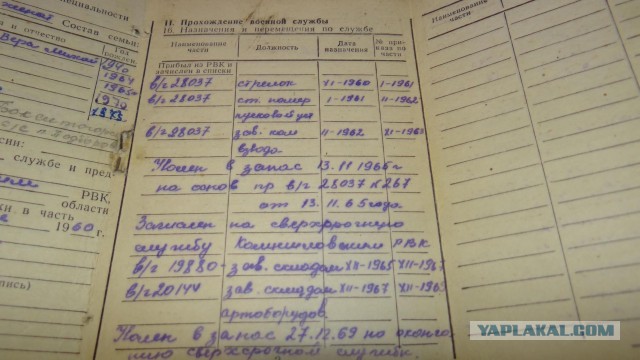 специальности
Состав семьи:
и отчество
Вера
1940
1964
1965
1930
сии:
службе и пред-
РВК,
области
ки в часть
1960 г.
пись)
II. Прохождение военной службы
16. Назначения и перемещения по службе
Наименование части
Должность
Дата назначения
№ приказа по части
Прибыл из РВК и зачислен в списки
в/ч 28037 стрелок XI-1960 I-1961
в/ч 28037 ст. номер I-1961 II-1962
пусковой уст
в/ч 28037 зав. ком II-1962 XI-1965
взвода
Уволен в запас 13.11 1965 г
на основ пр в/ч 28037 № 267
от 13.11.65 года
Зачислен на сверхсрочную
службу Калининским РВК
в/ч 19880- зав. складом XII-1965 XII-1967
в/ч 20144 зав. складом XII-1967 XII-1969
артоборудов.
Уволен в запас 27.12.69 по оконча-
нию сверхсрочной службы.
Наименование
части
YAPLAKAL.COM